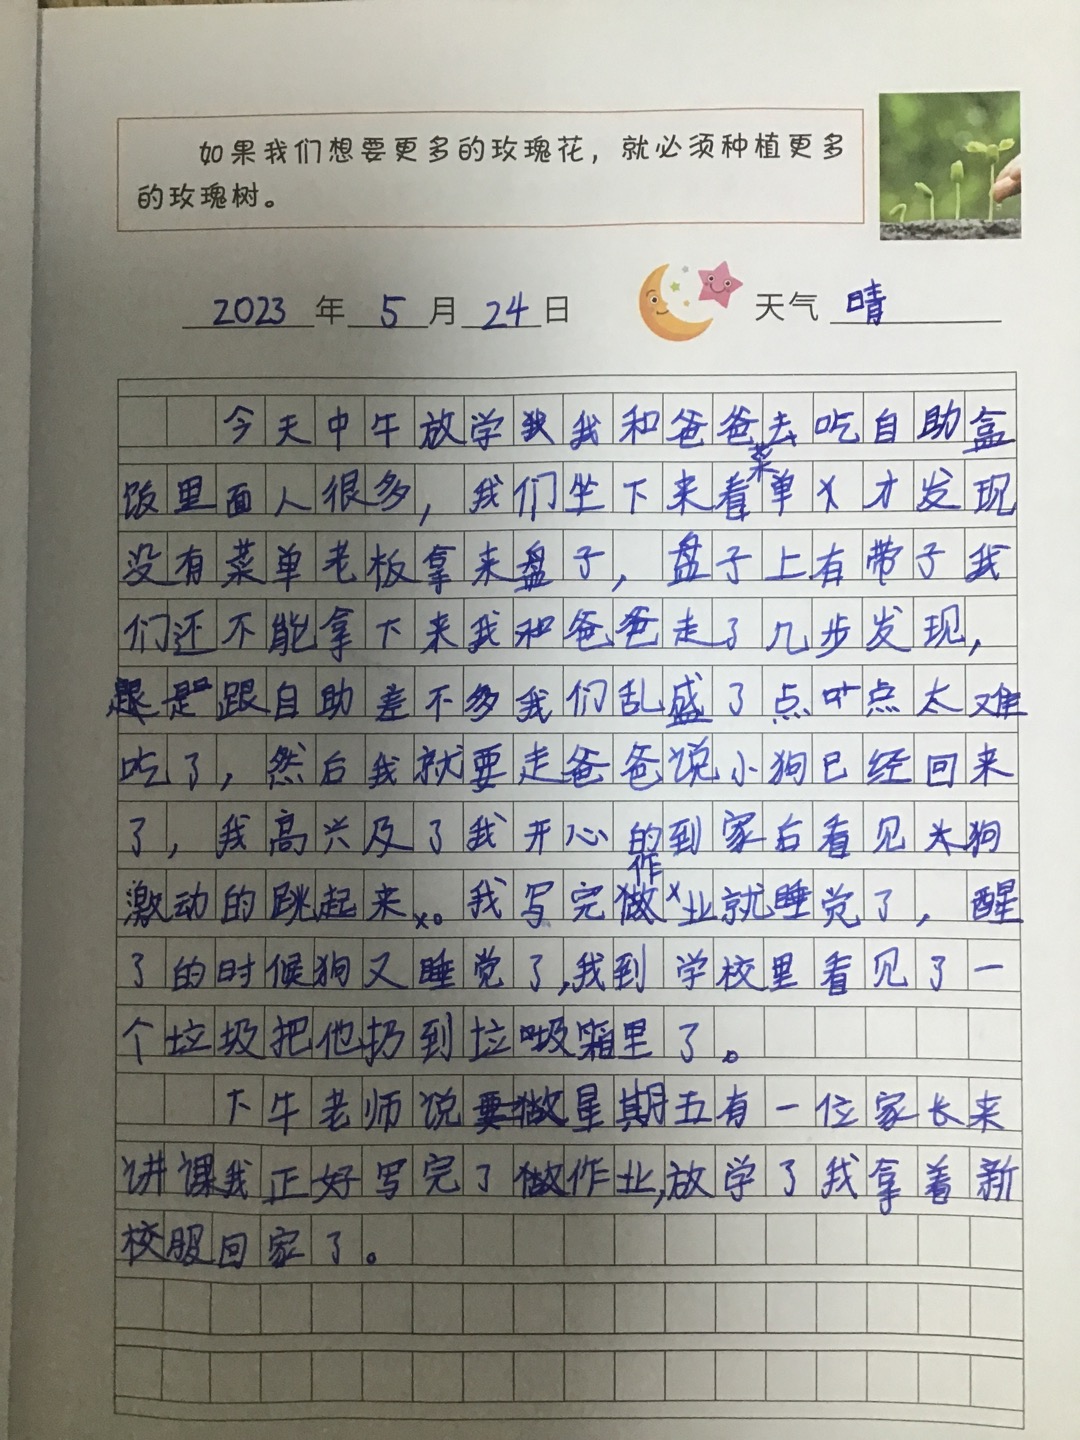 如果我们想要更多的玫瑰花，就必须种植更多
的玫瑰树。
2023年5月24日 天气 晴
今天中午放学我我和爸爸去吃自助盒
饭里面人很多，我们坐下来看菜单才发现
没有菜单老板拿来盘子，盘子上有带子我
们还不能拿下来我和爸爸走了几步发现，
是跟自助差不多我们乱盛了点 点太难
吃了，然后我就要走爸爸说小狗已经回来
了，我高兴及了我开心的到家后看见太狗
激动的跳起来。我写完作业就睡觉了，醒
了的时候狗又睡觉了，我到学校里看见了一
个垃圾把他扔到垃圾箱里了。
下午老师说星期五有一位家长来
讲课我正好写完了作业，放学了我拿着新
校服回家了。